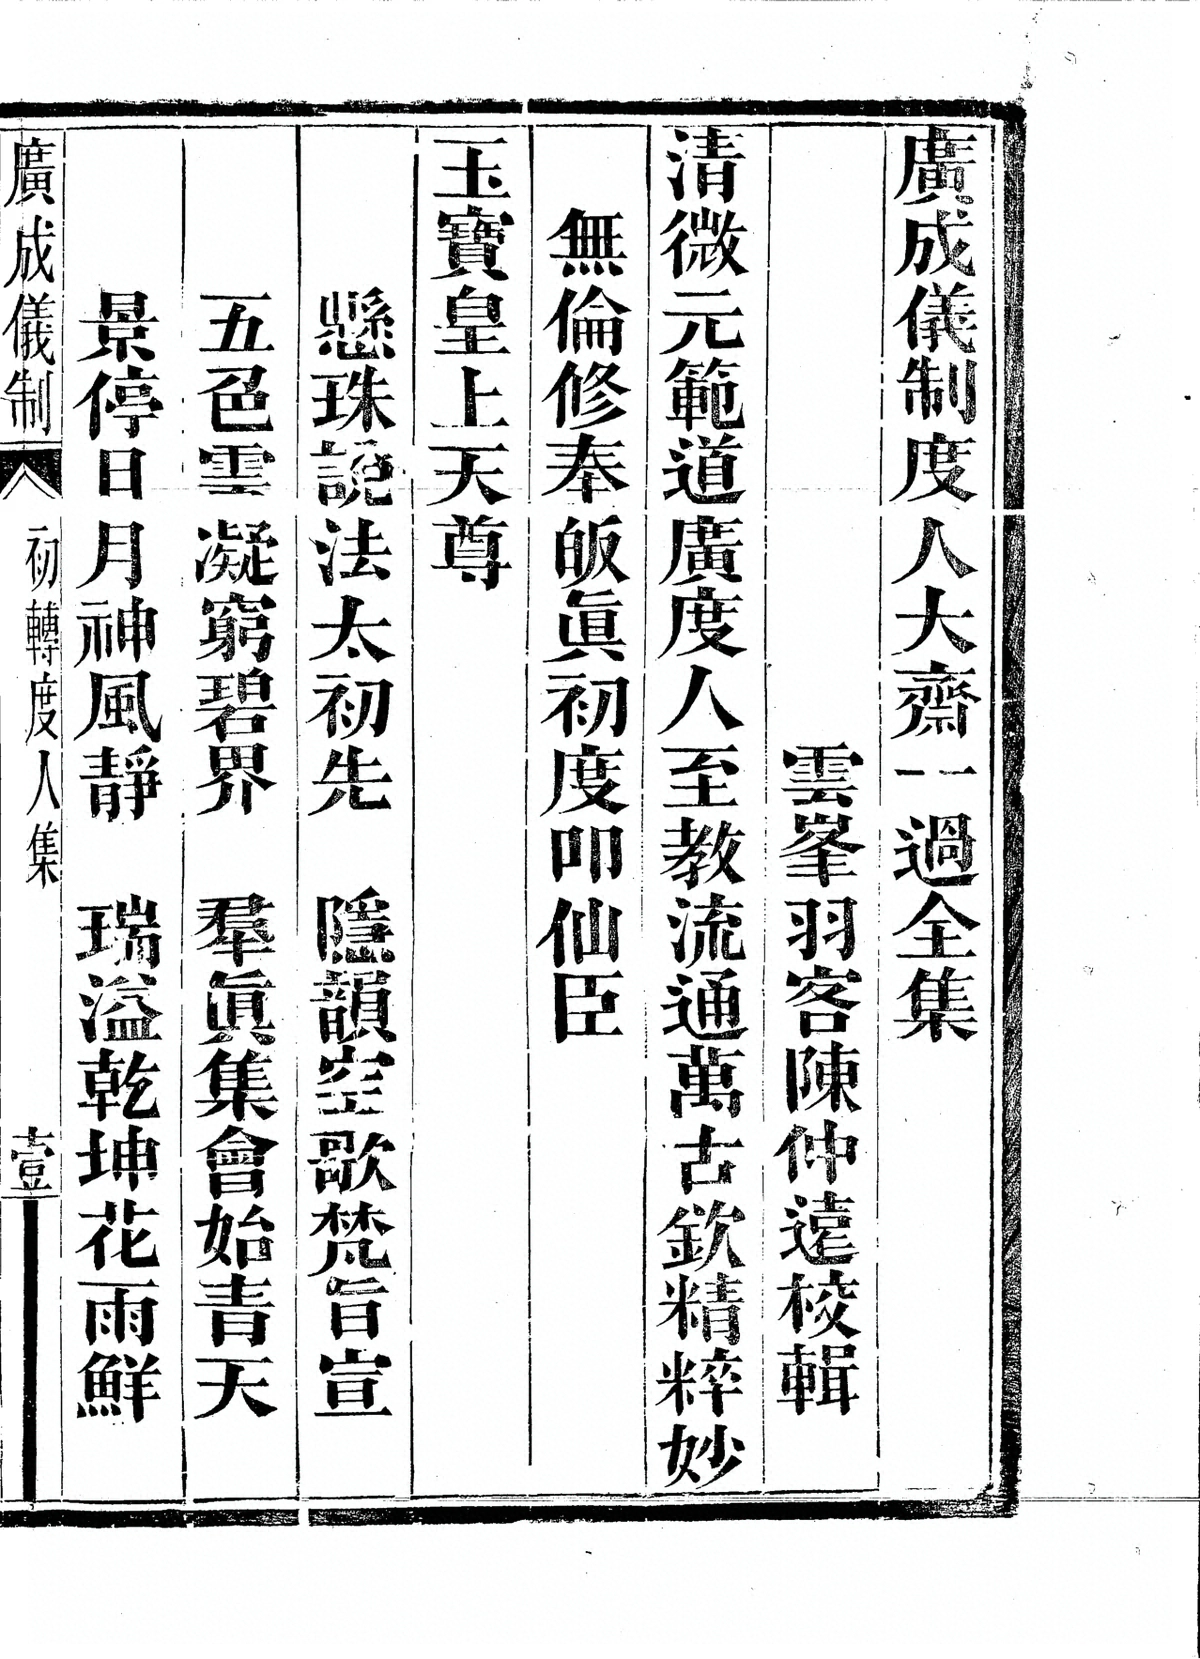 廣成儀制度人大齋一過全集
雲峯羽客陳仲遠校輯
清微元範道廣度人至教流通萬古欽精粹妙
無倫修奉皈眞初度叩仙臣
玉寶皇上天尊
懸珠説法太初先　隱韻空歌梵旨宣
五色雲凝窮碧界　羣眞集會始青天
景停日月神風靜　瑞溢乾坤花雨鮮
廣成儀制　初轉度人集　壹